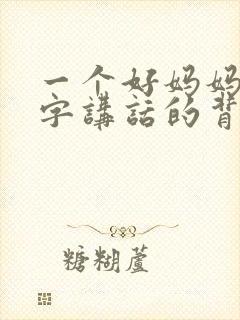 一个好妈妈
字講話的背
糖糊蘆